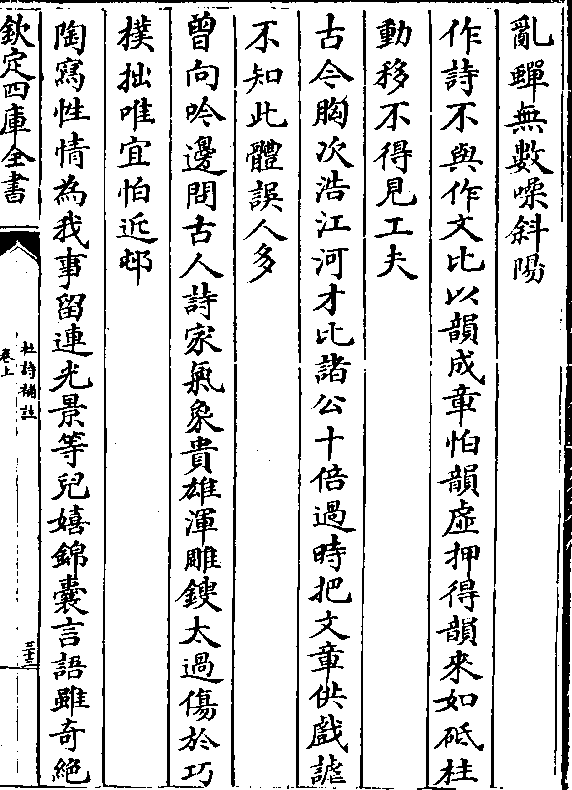 亂蟬無數噪斜陽
作詩不與作文比以韻成章怕韻虛押得韻來如砥柱
動移不得見工夫
古今胸次浩江河才比諸公十倍過時把文章供戲謔
不知此體誤人多
曾向吟邊問古人詩家氣象貴雄渾雕鎪太過傷於巧
樸拙唯宜怕近邨
陶寫性情為我事留連光景等兒嬉錦囊言語雖奇絕
欽定四庫全書
杜詩補註
卷上
三十三